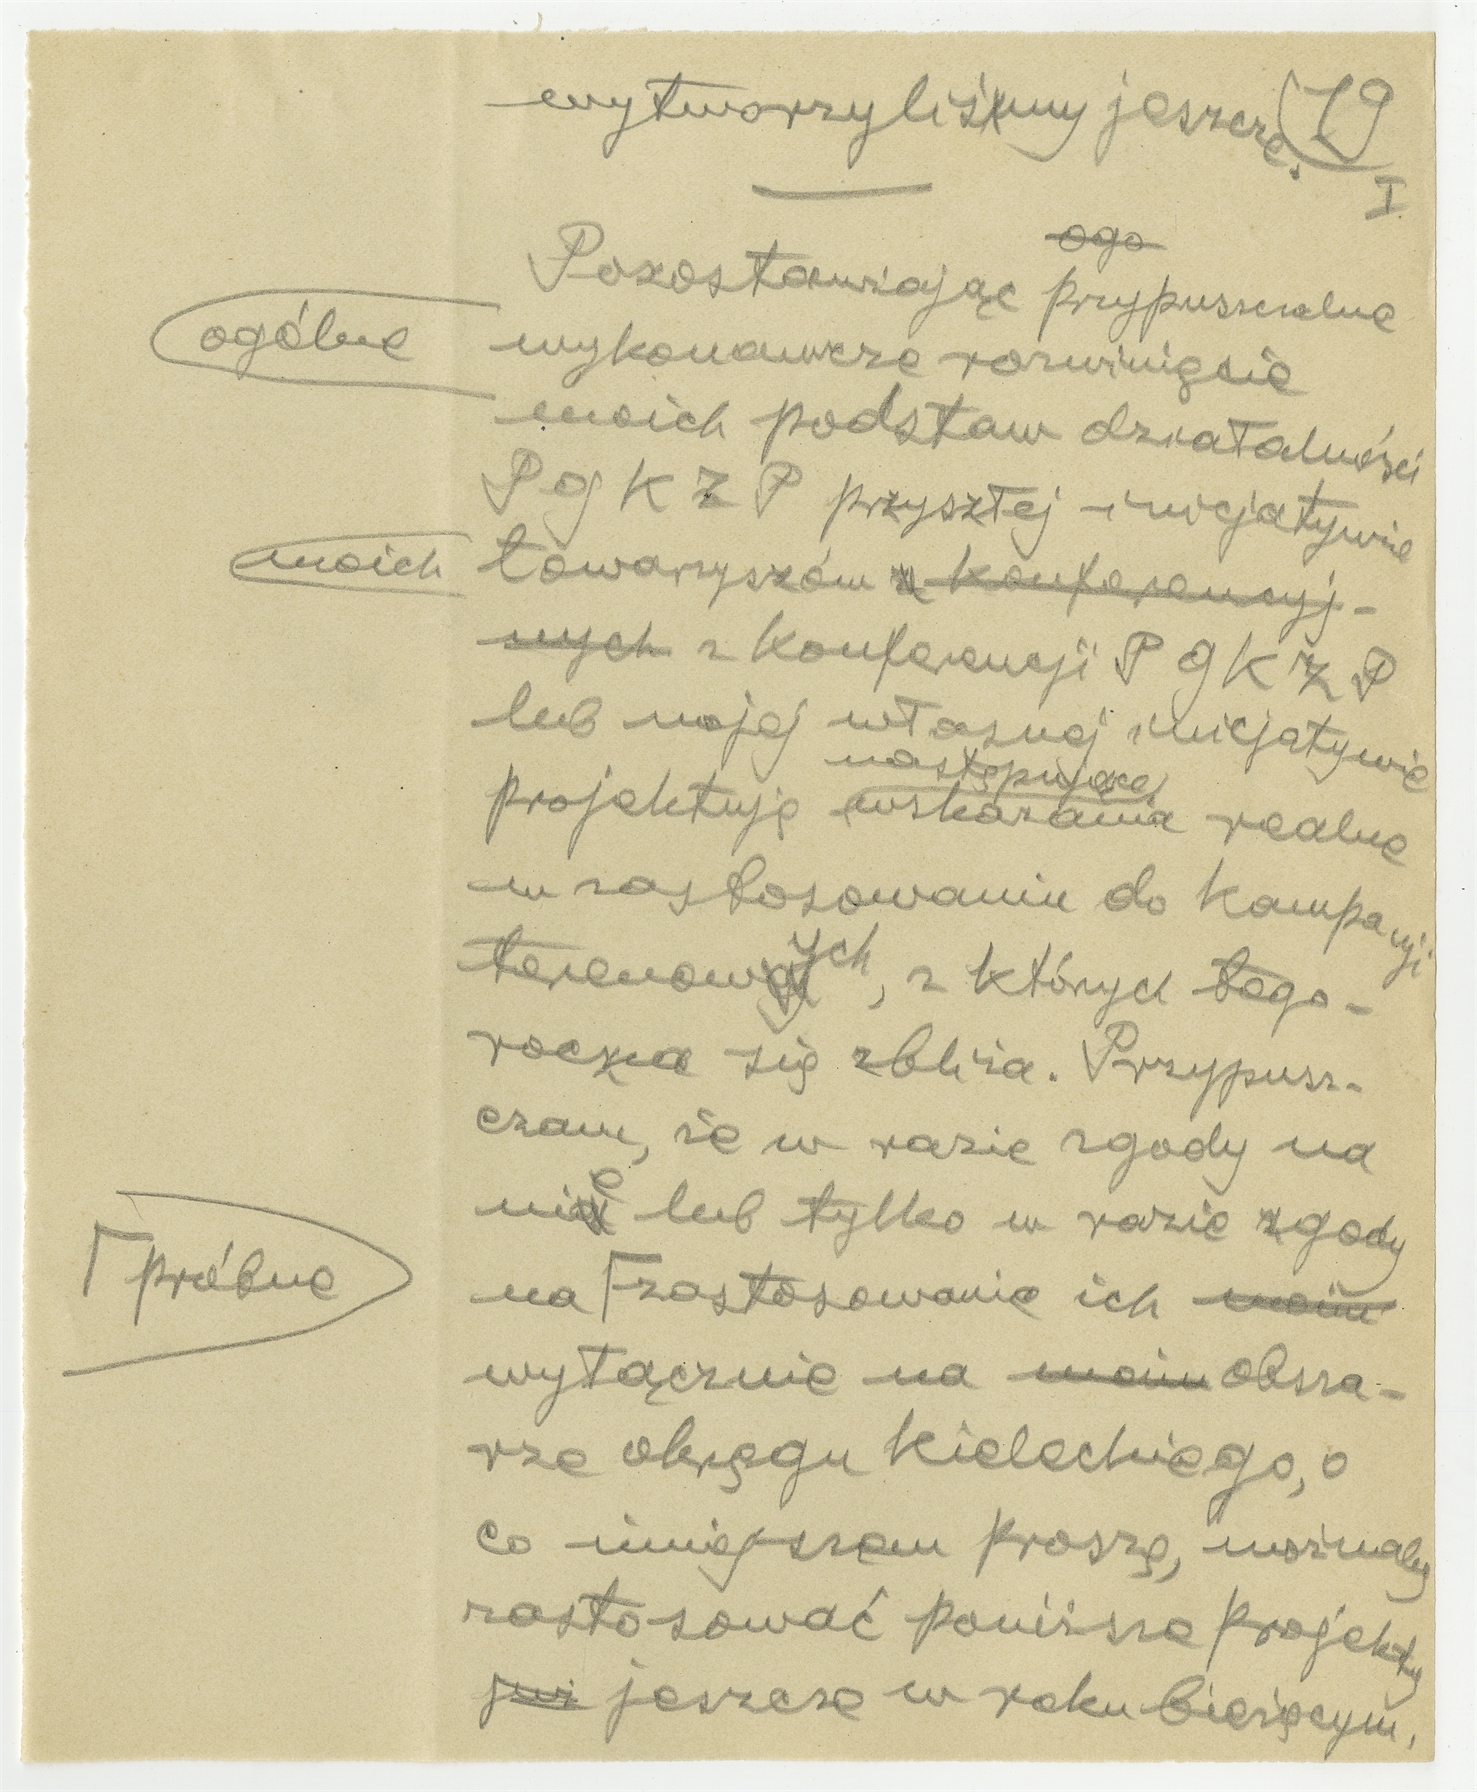 wytworzyliśmy jeszcze.
79
I
ogo
Pozostawiając przypuszczalne
ogólne
wykonawcze rozwinięcie
moich podstaw działalności
P G K Z P przyszłej inicjatywie
moich
towarzyszów z konferencyj-
nych z konferencji P G K Z P
lub mojej własnej inicjatywie
następujące,
projektuję wskazania realne
w zastosowaniu do kampanji
terenowych, z których tego-
roczna się zbliża. Przypusz-
czam, że w razie zgody na
nie lub tylko w razie zgody
próbne
na zastosowanie ich moim
wyłącznie na moim obsza-
rze okręgu kieleckiego, o
co niniejszem proszę, możnaby
zastosować poniższe projekty
już jeszcze w roku bieżącym.